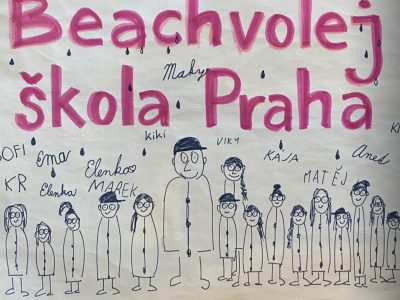 Beachvolej
Maky
škola Praha
Kiki
VIKY
SOFI
Ema
Elenkao
KAJA
Anes
KR
Elenka
MAREK
MATĚJ